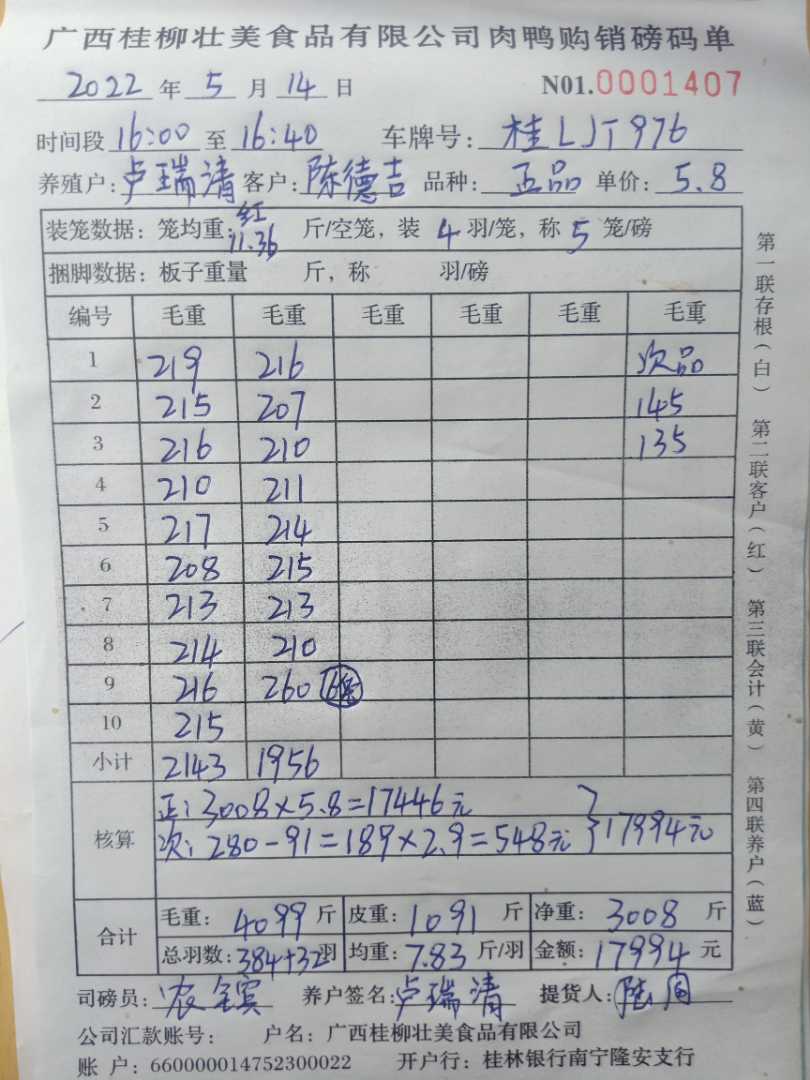 广西桂柳壮美食品有限公司肉鸭购销磅码单
2022 年 5 月 14 日 N01.0001407
时间段 16:00 至 16:40 车牌号: 桂LJT976
养殖户: 卢瑞清 客户: 陈德吉 品种: 正品 单价: 5.8
装笼数据: 笼均重: 红 11.36 斤/空笼, 装 4 羽/笼, 称 5 笼/磅
捆脚数据: 板子重量 斤, 称 羽/磅
编号 毛重 毛重 毛重 毛重 毛重 毛重
1 219 216 次品
2 215 207 145
3 216 210 135
4 210 211
5 217 214
6 208 215
7 213 213
8 214 210
9 216 260
10 215
小计 2143 1956
核算 正: 3008×5.8=17446元
次: 280-91=189×2.9=548元 }17994元
合计 毛重: 4099 斤 皮重: 1091 斤 净重: 3008 斤
总羽数: 384+32羽 均重: 7.83 斤/羽 金额: 17994 元
司磅员: 养户签名: 卢瑞清 提货人:
公司汇款账号: 户名: 广西桂柳壮美食品有限公司
账 户: 660000014752300022 开户行: 桂林银行南宁隆安支行
第一联存根(白) 第二联客户(红) 第三联会计(黄) 第四联养户(蓝)